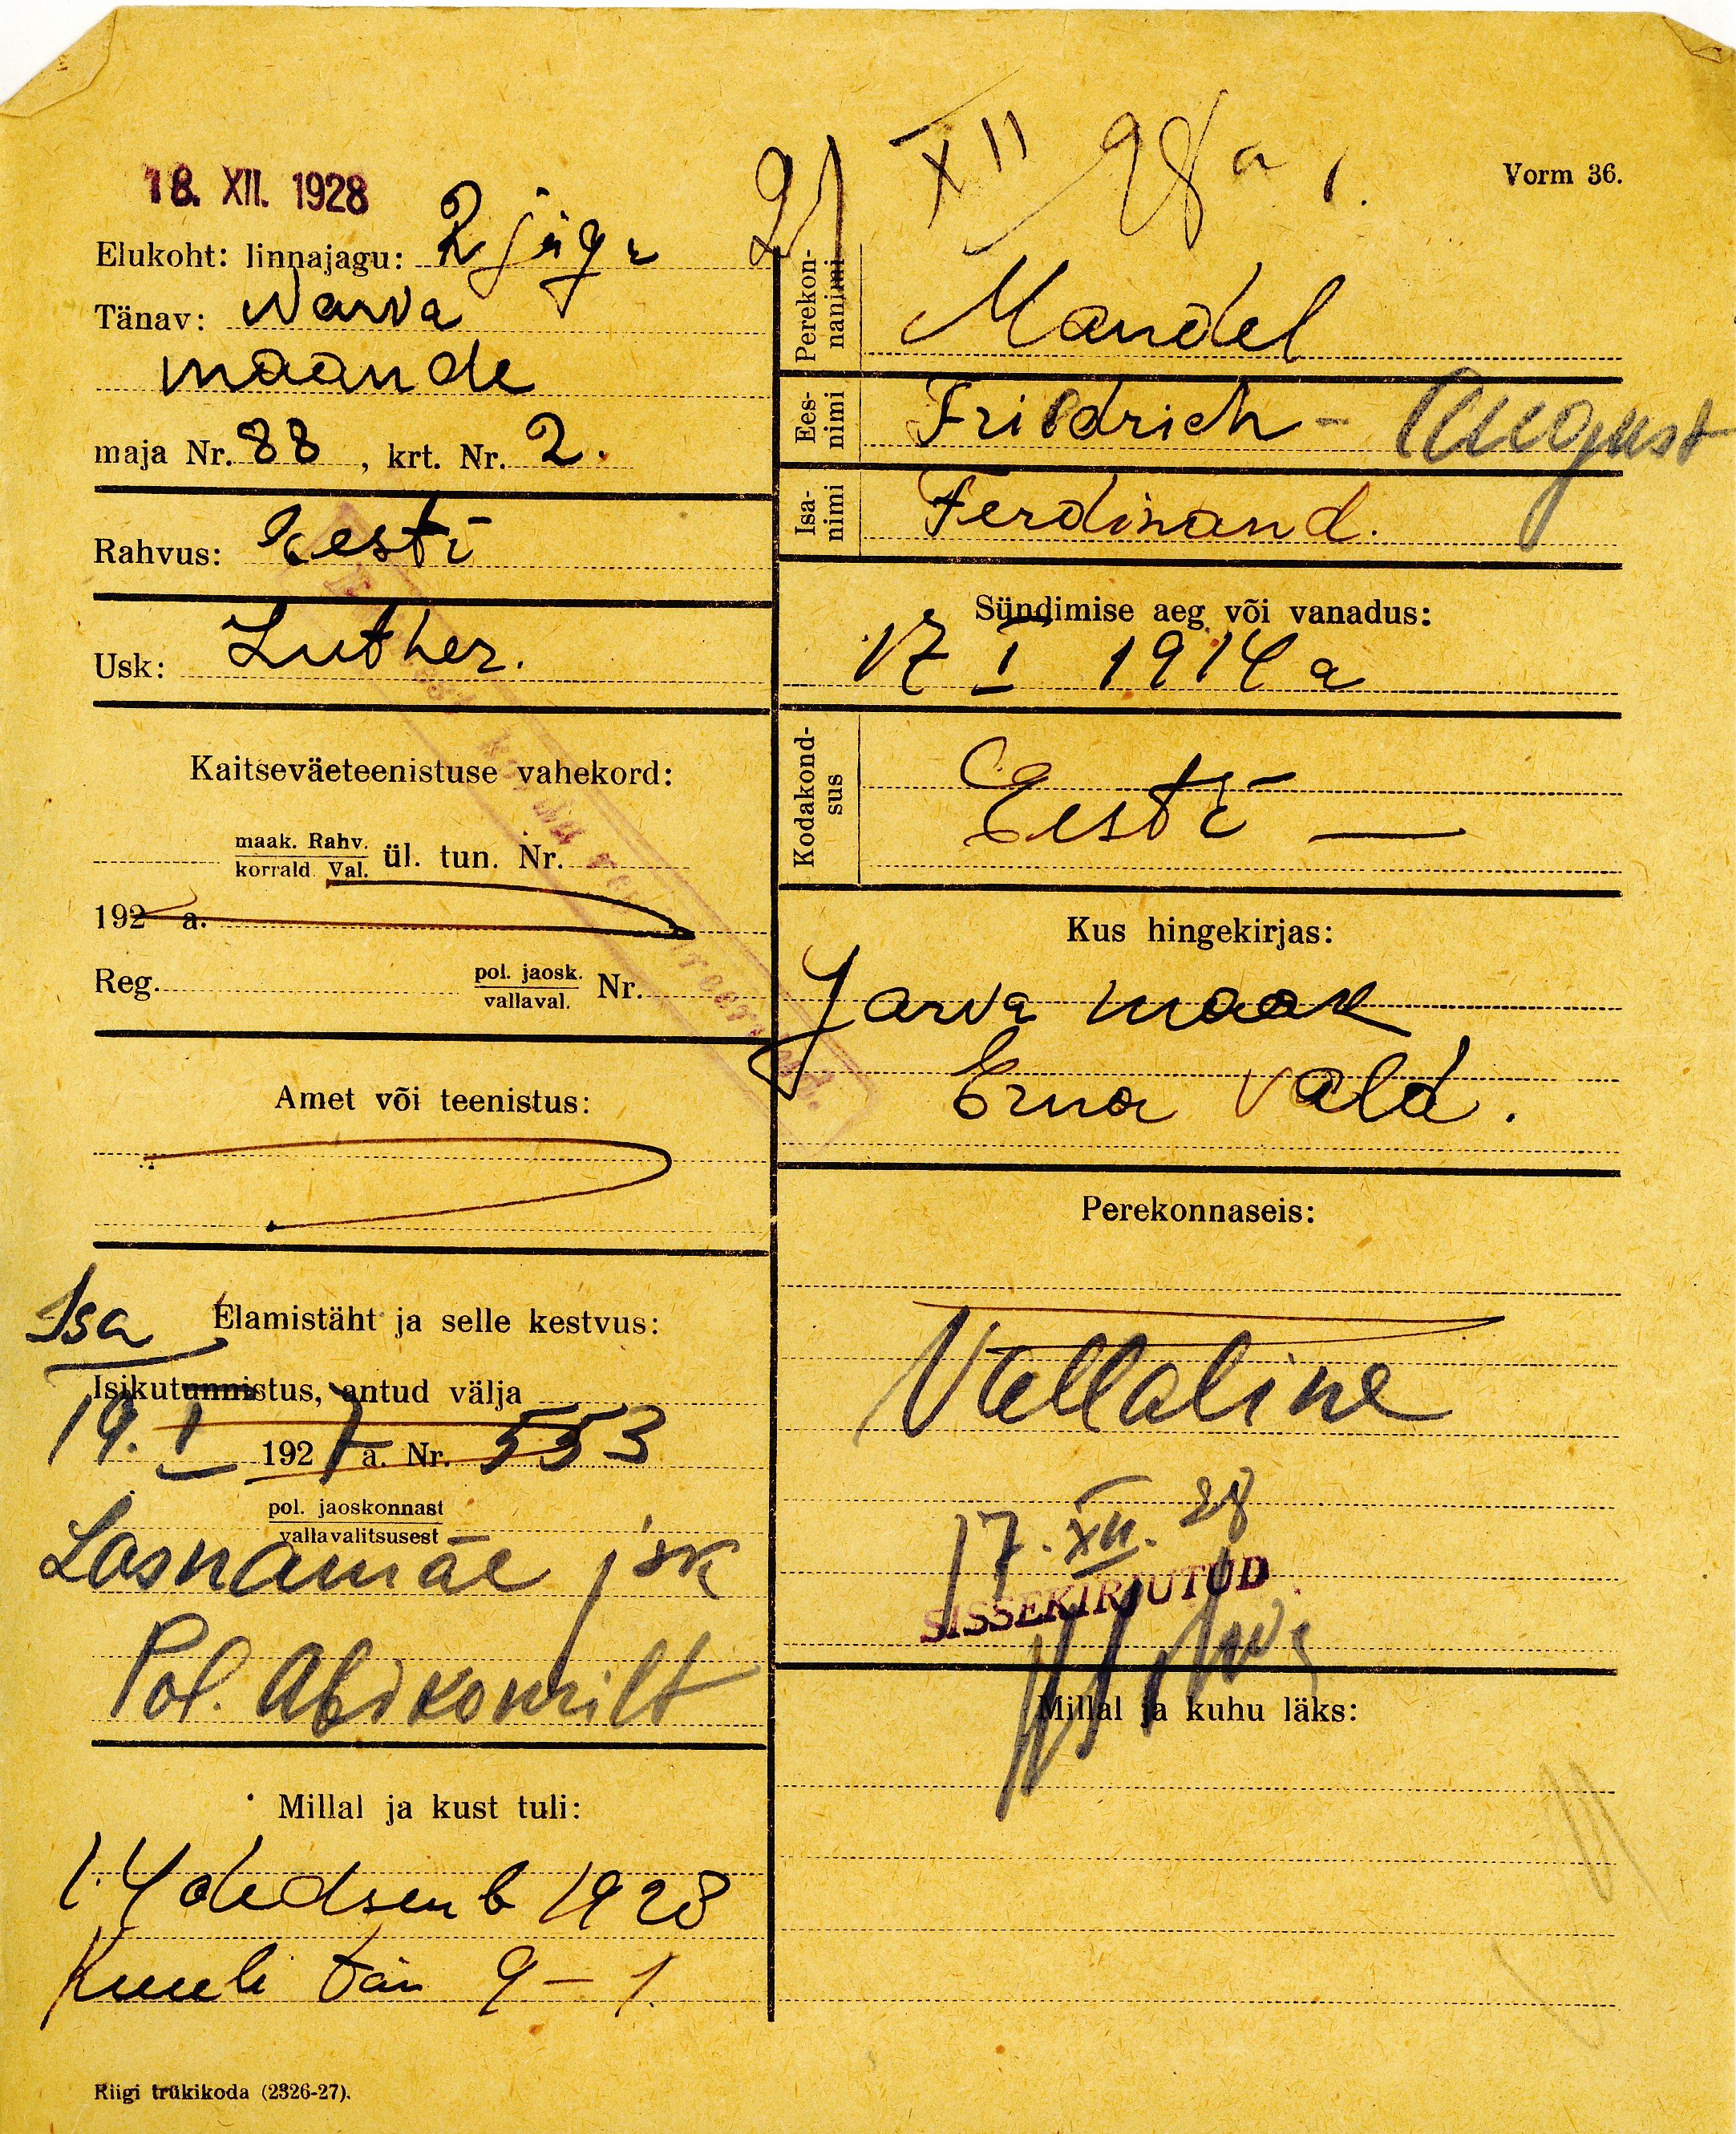 18. XII. 1928
XII 28 a.
Vorm 36.
Elukoht: linnajagu: 2 jagu
Tänav: Narva
maande
maja Nr. 88, krt. Nr. 2.
Rahvus: Eesti
Usk: Luther.
Kaitseväeteenistuse vahekord:
maak. Rahv.
korrald. Val. ül. tun. Nr.
192 a.
Reg. pol. jaosk.
vallaval. Nr.
Amet või teenistus:
Isa Elamistäht ja selle kestvus:
Isikutunnistus, antud välja
19. I 1927 a. Nr. 553
pol. jaoskonnast
vallavalitsusest
Lasnamäe jsk
Pol. Abikomilt
Millal ja kust tuli:
14 detsemb 1928
Kuuli tän 9-1.
Riigi trükikoda (2326-27).
Perekonnanimi Mandel
Eesnimi Friedrich - August
Isanimi Ferdinand.
Sündimise aeg või vanadus:
17 I 1914 a
Kodakondsus
Eesti —
Kus hingekirjas:
Jarva maak
Erna vald.
Perekonnaseis:
Vallaline
17. XII. 28
SISSEKIRJUTUD
Millal ja kuhu läks: